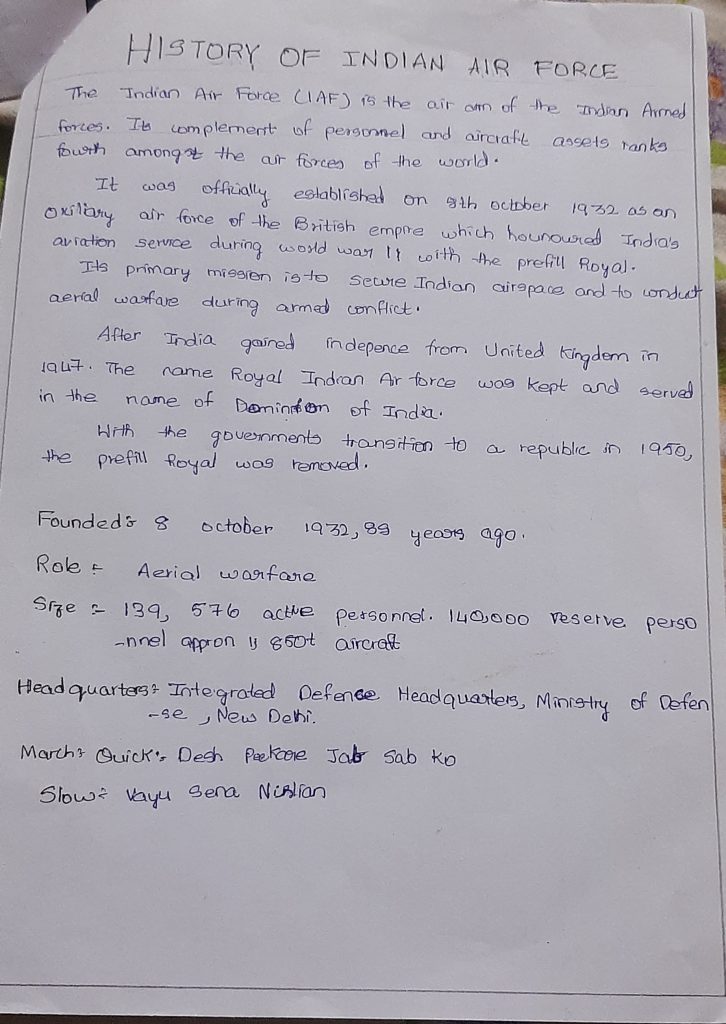 HISTORY OF INDIAN AIR FORCE
The Indian Air Force (IAF) is the air arm of the Indian Armed
forces. Its complement of personnel and aircraft assets ranks
fourth amongst the air forces of the world.
It was officially established on 8th october 1932 as an
Oxiliary air force of the British empire which hounoured India's
aviation service during world war II with the prefill Royal.
Its primary mission is to secure Indian airspace and to conduct
aerial warfare during armed conflict.
After India gained indepence from United Kingdom in
1947. The name Royal Indian Air force was kept and served
in the name of Dominion of India.
With the governments transition to a republic in 1950,
the prefill Royal was removed.
Founded:- 8 october 1932, 89 years ago.
Role :- Aerial warfare
Size :- 139, 576 active personnel. 140,000 reserve perso
-nnel appron 850+ aircraft
Headquarters:- Integrated Defence Headquarters, Ministry of Defen
-se, New Delhi.
March:- Quick:- Desh Jab Sab Ko
Slow:- Vayu Sena Nishan